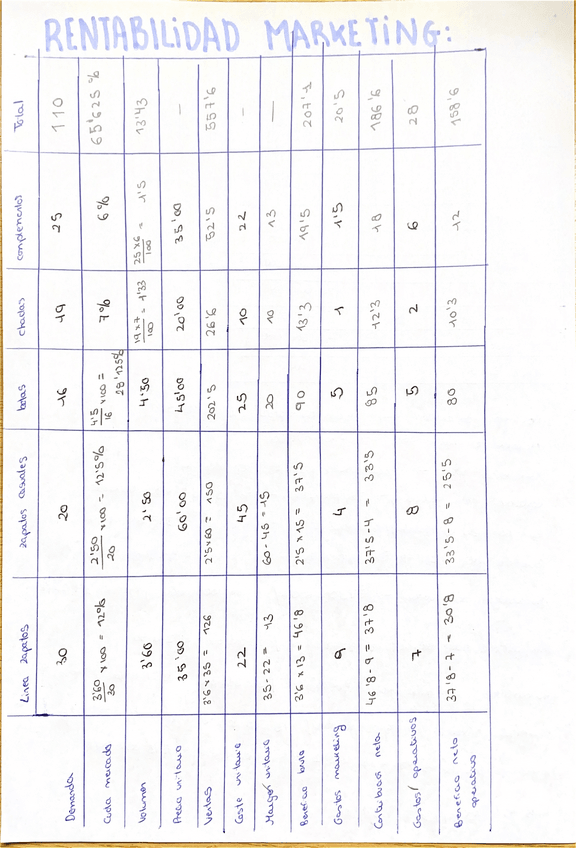 RENTABILIDAD MARKETING:
Línea zapatos zapatos casuales botas chuclas complementos Total
Demanda 30 20 16 19 25 110
Cuota mercado 3'60/30 x100 = 12% 2'50/20 x100 = 12'5% 4'5/16 x100 = 28'125% 7% 6% 65'625%
Volumen 3'60 2'50 4'50 19x7/100 = 1'33 25x6/100 = 1'5 13'43
Precio unitario 35'00 60'00 45'00 20'00 35'00 —
Ventas 3'6 x 35 = 126 2'5 x 60 = 150 202'5 26'6 52'5 557'6
Coste unitario 22 45 25 10 22 —
Margen unitario 35 - 22 = 13 60 - 45 = 15 20 10 13 —
Beneficio bruto 3'6 x 13 = 46'8 2'5 x 15 = 37'5 90 13'3 19'5 207'1
Gastos marketing 9 4 5 1 1'5 20'5
Contribución neta 46'8 - 9 = 37'8 37'5 - 4 = 33'5 85 12'3 18 186'6
Gastos operativos 7 8 5 2 6 28
Beneficio neto operativo 37'8 - 7 = 30'8 33'5 - 8 = 25'5 80 10'3 12 158'6